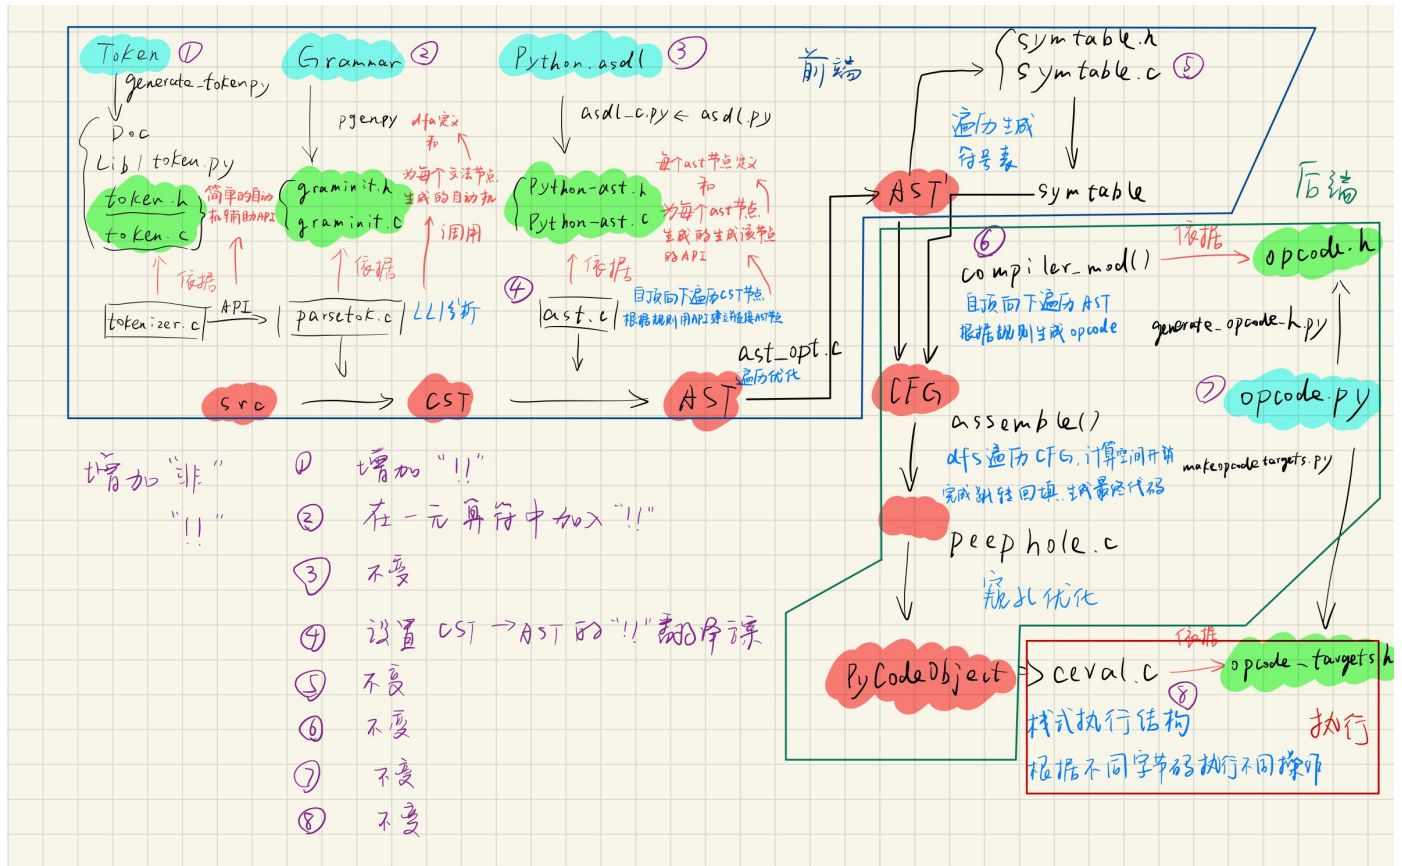 Token ①
generate_token.py
Doc
Lib / token.py
token.h
token.c
简单的自动
机辅助API
依据
tokenizer.c
API
Grammar ②
pgen.py
dfa定义
和
为每个文法节点
生成的自动机
graminit.h
graminit.c
调用
依据
parsetok.c
LL1分析
Python.asdl ③
asdl_c.py ← asdl.py
每个ast节点定义
和
为每个ast节点
生成的生成该节点
的API
Python-ast.h
Python-ast.c
依据
④
ast.c
自顶向下遍历CST节点
根据规则用API建立并连接AST节点
src
CST
AST
ast_opt.c
遍历优化
前端
symtable.h
symtable.c ⑤
遍历生成
符号表
AST'
symtable
后端
⑥
compiler_mod()
依据
opcode.h
自顶向下遍历AST
根据规则生成opcode
generate_opcode_h.py
CFG
⑦
opcode.py
assemble()
dfs遍历CFG,计算空间开销
完成跳转回填,生成最终代码
makeopcodetargets.py
peephole.c
窥孔优化
PyCodeObject
ceval.c
依据
⑧
opcode_targets.h
栈式执行结构
执行
根据不同字节码执行不同操作
增加"非"
"!!"
① 增加"!!"
② 在一元算符中加入"!!"
③ 不变
④ 设置 CST→AST的"!!"翻译
⑤ 不变
⑥ 不变
⑦ 不变
⑧ 不变